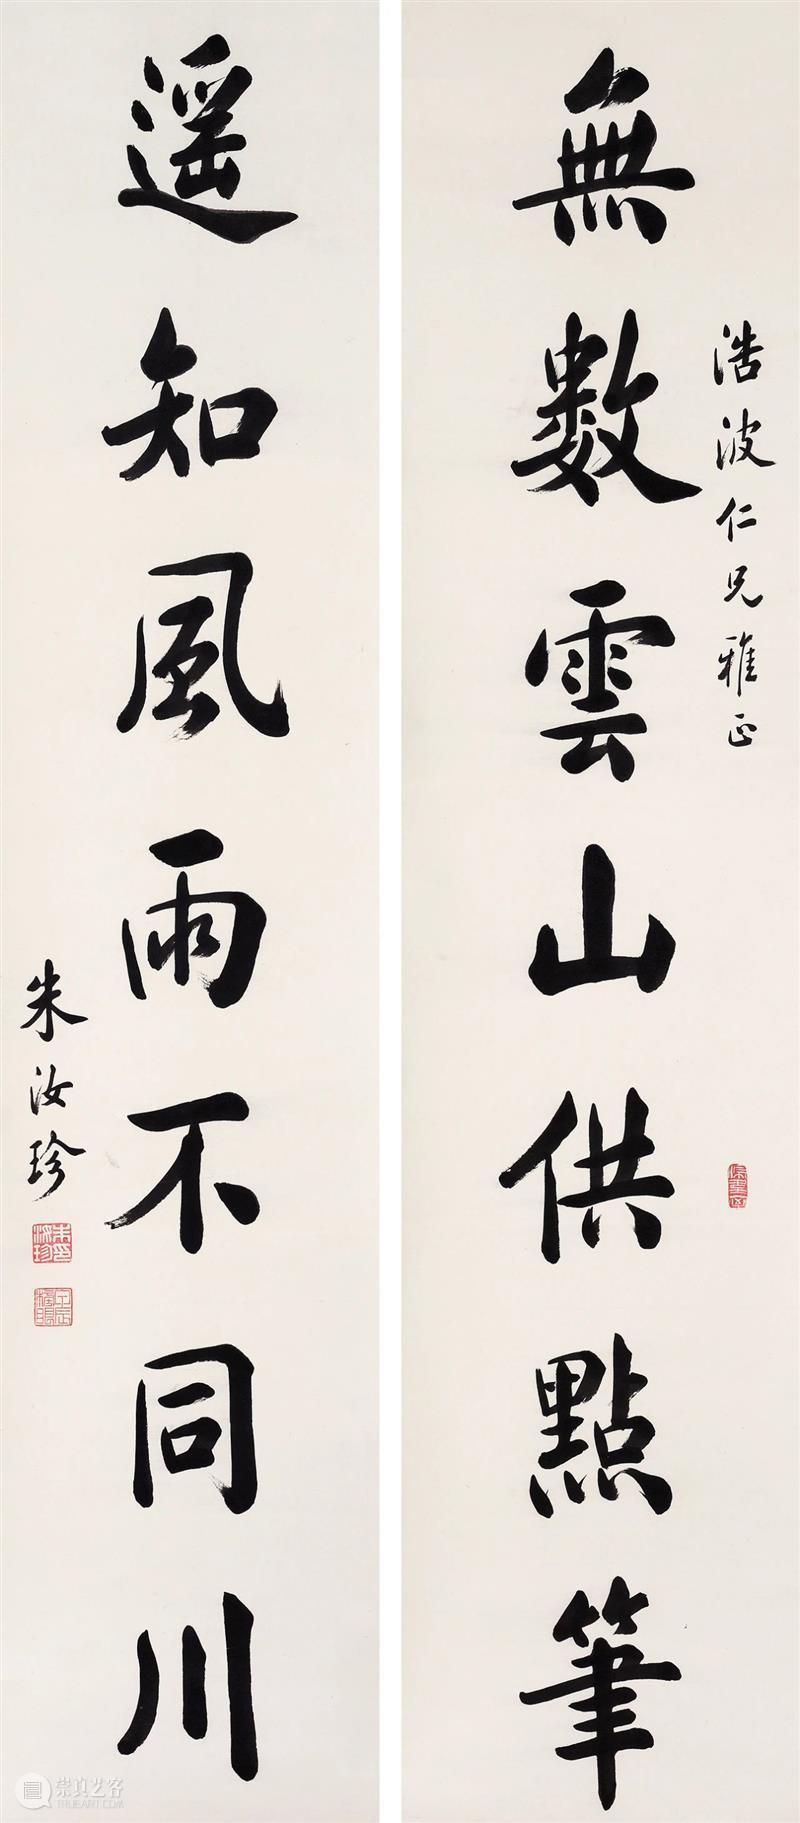 浩波仁兄雅正
無數雲山供點筆
遥知風雨不同川
朱汝珍
朱汝珍印
崇真艺客
TRUEART.COM